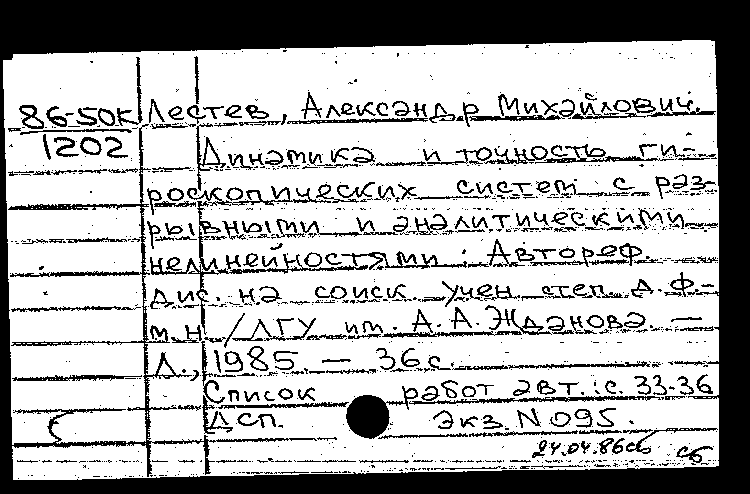 86-50К Лестев, Александр Михайлович.
1202 Динамика и точность ги-
роскопических систем с раз-
рывными и аналитическими
нелинейностями : Автореф.
дис. на соиск. учен. степ. д. ф.-
м.н. /ЛГУ им. А. А. Жданова. —
Л., 1985. — 36 с.
Список работ авт.: с. 33-36
ДСП. Экз. N 095.
24.04.86 сб сб